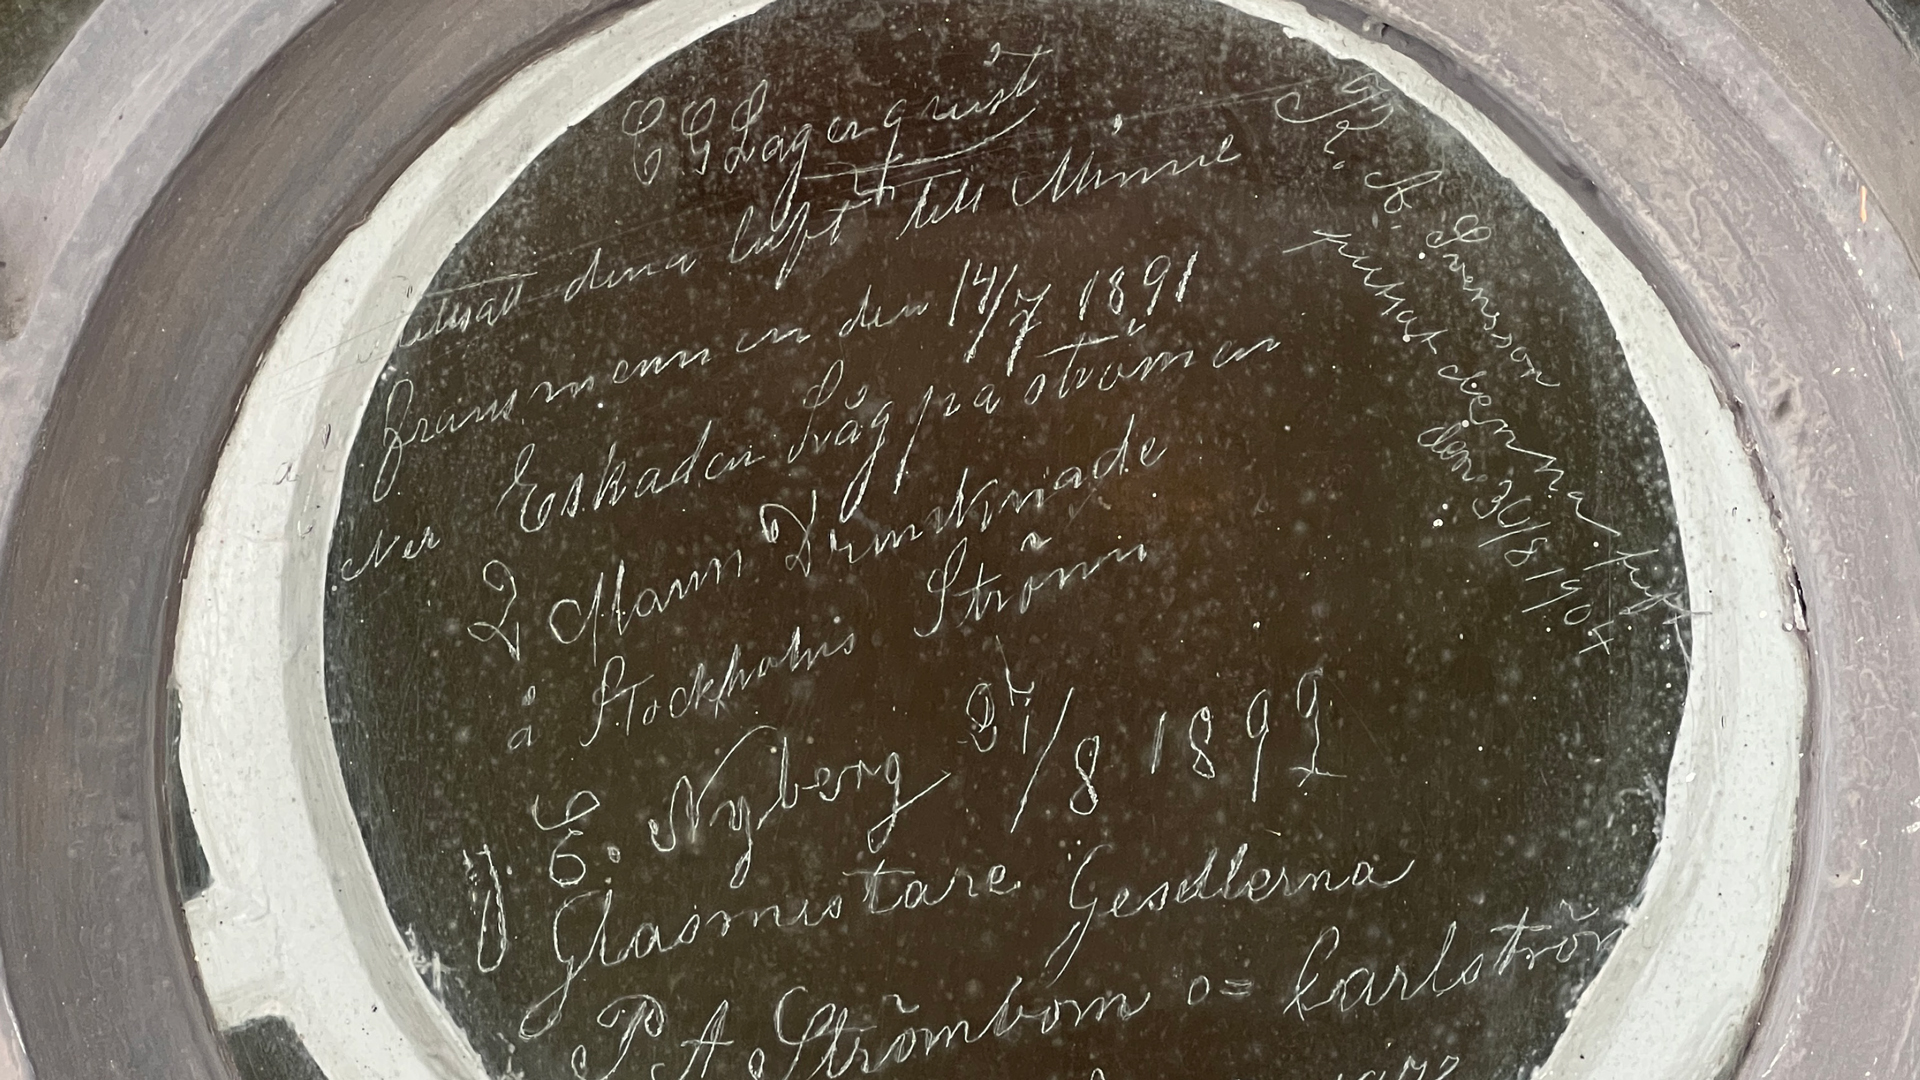 C. G. Lagerqvist
denna luft till Minne
fransmennen den 14/7 1891
der Eskaden Låg på strömen
2 Mann Drunknade
å Stockholms Ström
J. E. Nyberg 24/8 1892
Glasmestare Gesällerna
P A Strömbom o= Karlström
A. Svensson
putsat denna luft
den 30/8 1904